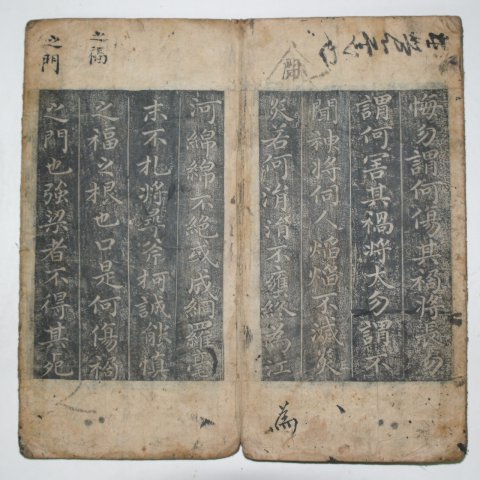 悔勿謂何傷其禍將長勿
謂何害其禍將太勿謂不
聞神將伺人焰焰不滅炎
炎若何涓涓不壅終為江
為
河綿綿不絕或成網羅毫
末不札將尋斧柯誠能慎
之福之根也口是何傷禍
之門也強梁者不得其死
之福
之門